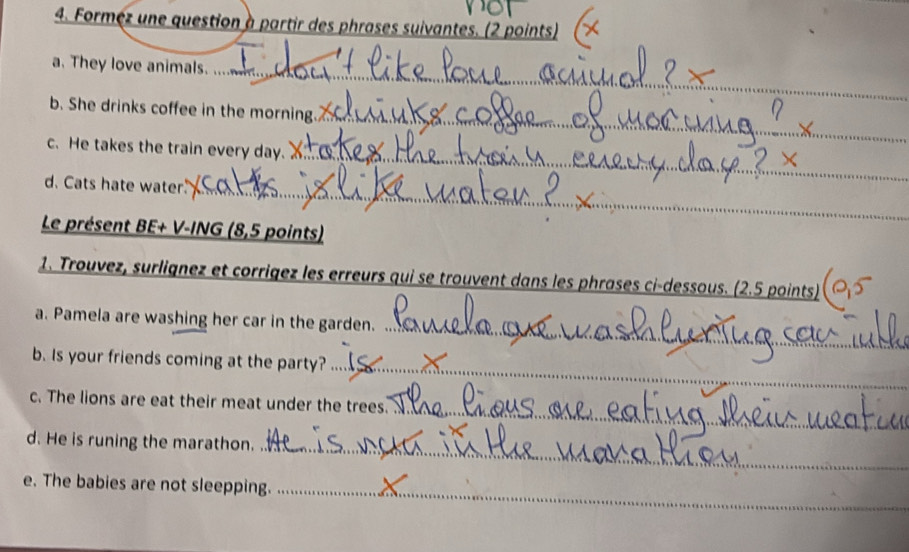 not
4. Formez une question à partir des phrases suivantes. (2 points) (x
a. They love animals. I don't like love animal ? x
b. She drinks coffee in the morning. x drinks coffee of morning ? x
c. He takes the train every day. x takes the train every day ? x
d. Cats hate water. x cats is like water ? x
Le présent BE+ V-ING (8,5 points)
1. Trouvez, surlignez et corrigez les erreurs qui se trouvent dans les phrases ci-dessous. (2.5 points) (0,5
a. Pamela are washing her car in the garden. Pamela are wash car in the
b. Is your friends coming at the party? is x
c. The lions are eat their meat under the trees. The lious are eating their meat
d. He is runing the marathon. He is run in the marathon
e. The babies are not sleepping. x